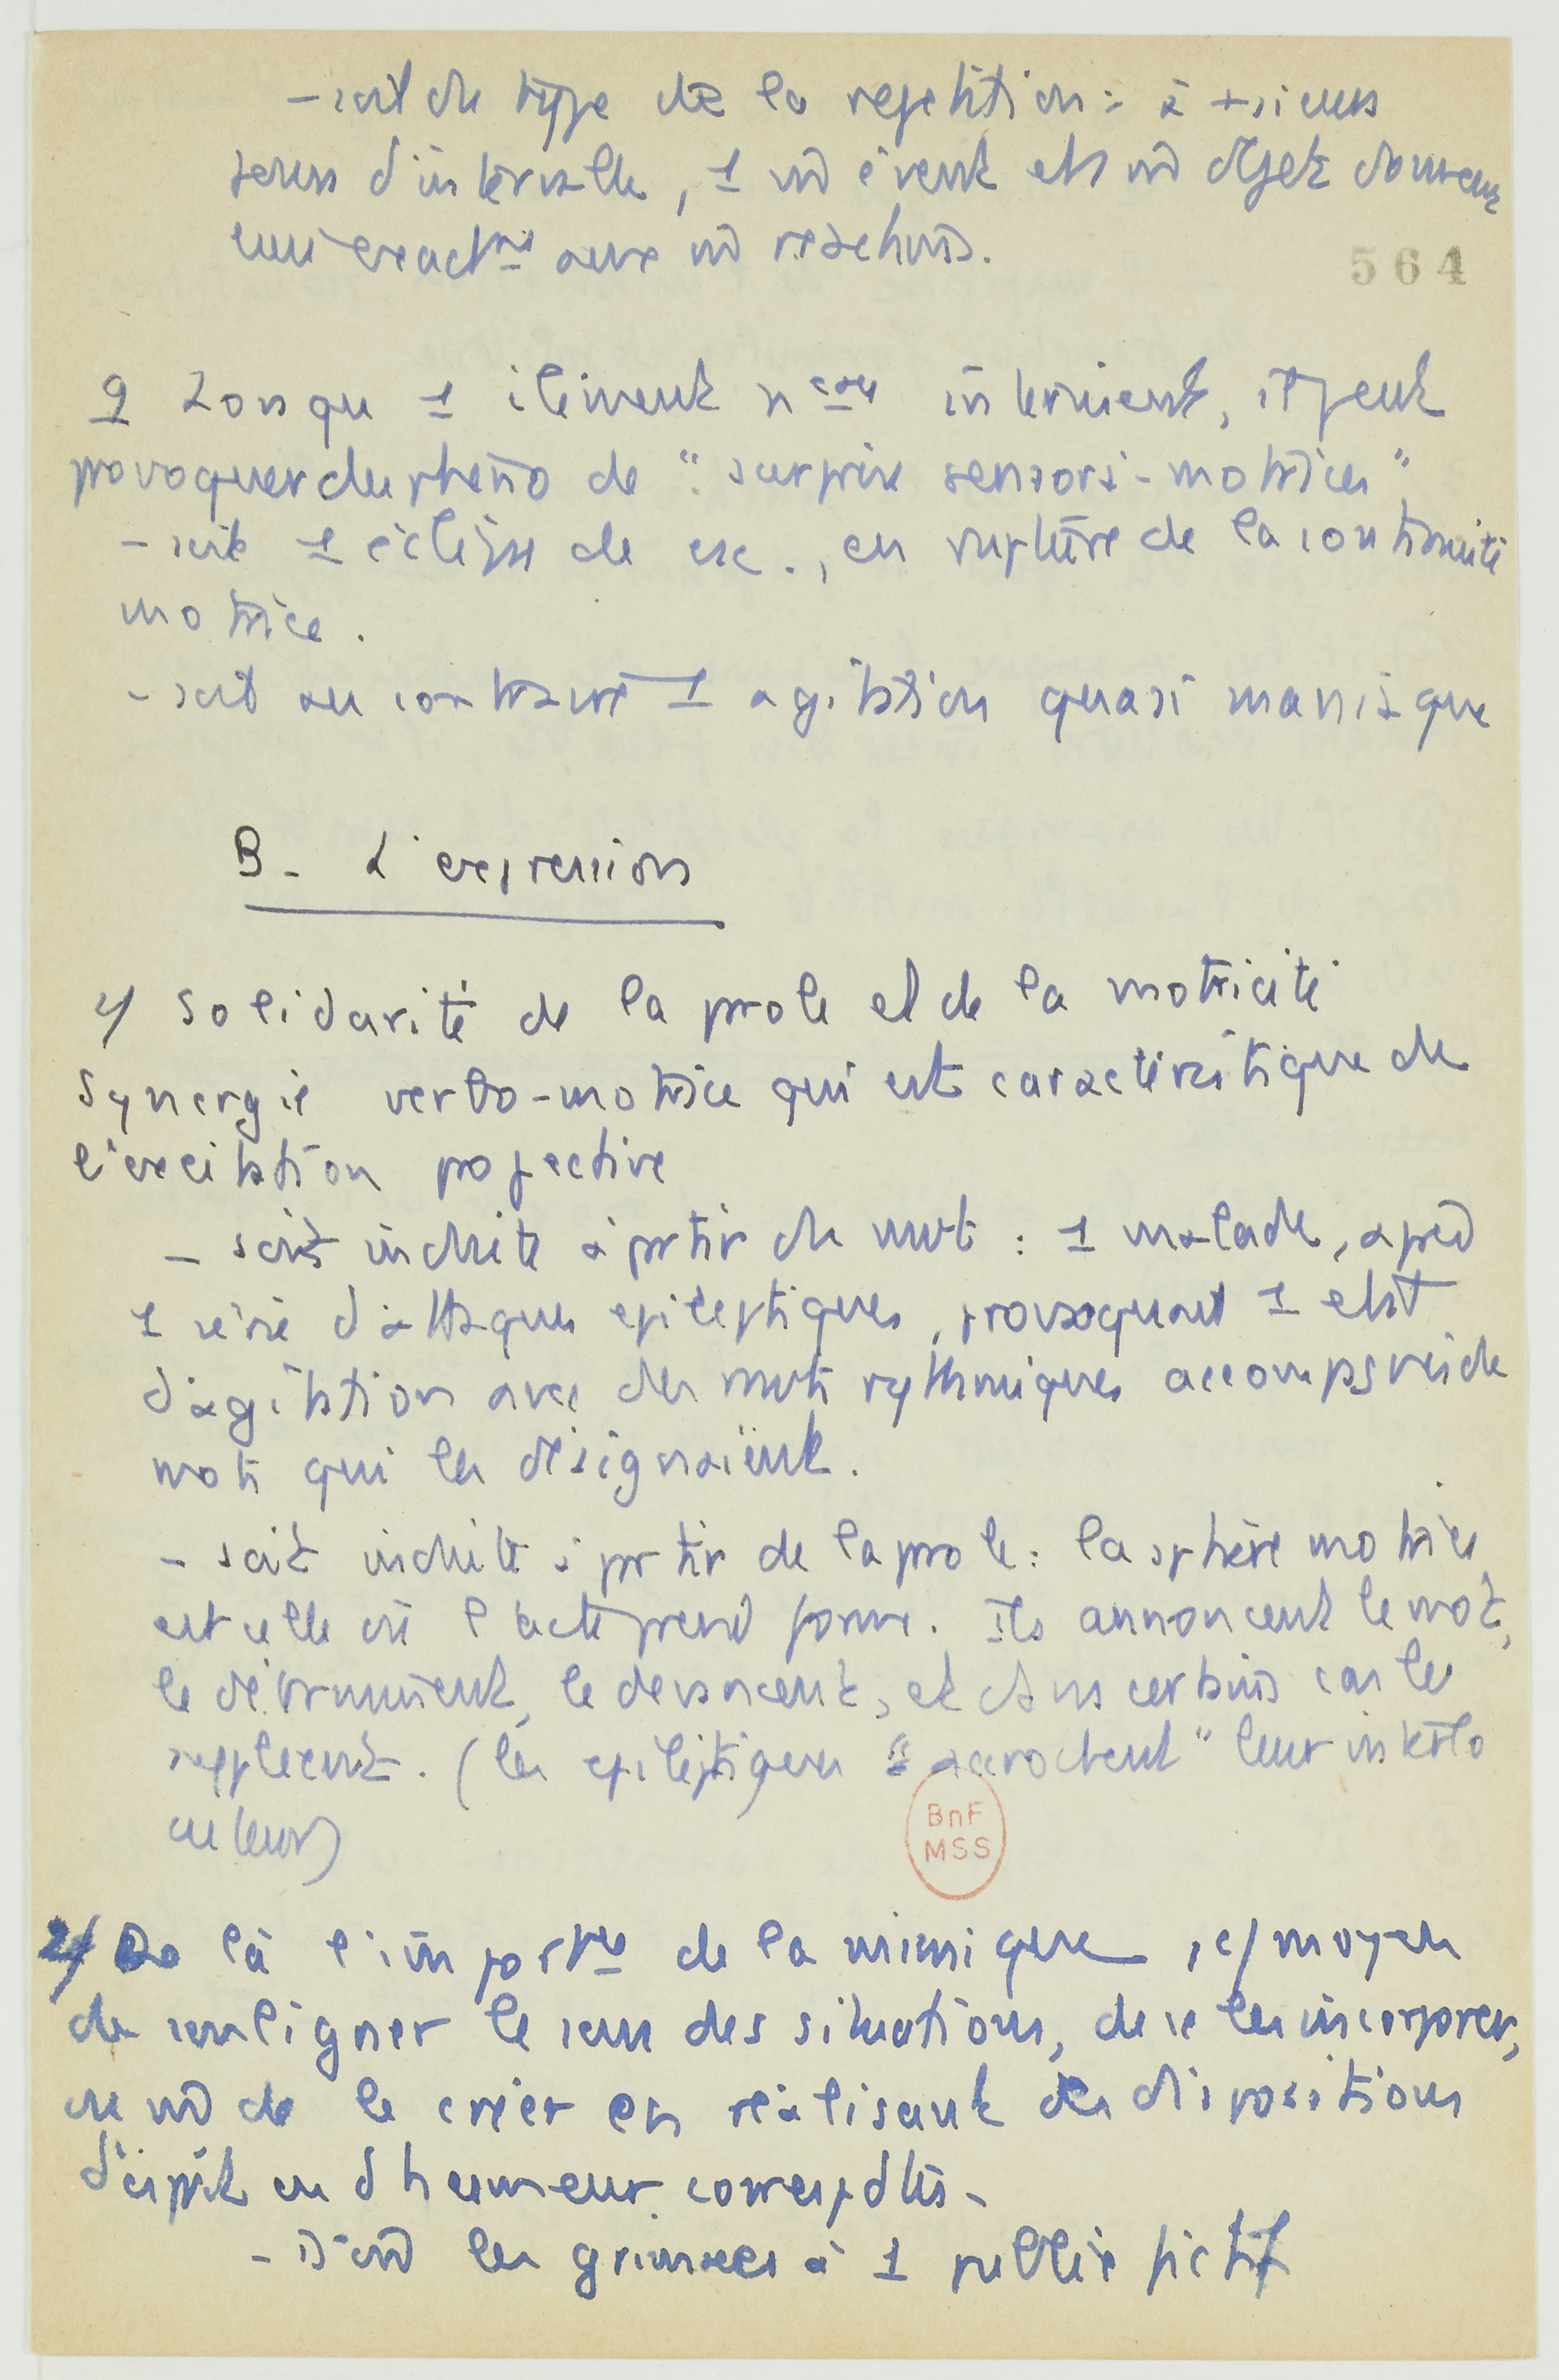 - soit du type de la repetition : à +sieurs
jours d'intervalle, 1 m̂ évent et m̂ objet donnent
lieu exactmt aux m̂ réactions.
564
2 Lorsque 1 élément nveau intervient, il peut
provoquer du phéno de "surprise sensori-motrice"
- soit 1 éclipse de csc., ou rupture de la continuité
motrice.
- soit au contraire 1 agitation quasi maniaque
B - L'expression
1/ Solidarité de la prole et de la motricité
Synergie verbo-motrice qui est caractéristique de
l'excitation projective
- soit induite à prtir du mvt : 1 malade, après
1 série d'attaques epileptiques, provoquant 1 etat
d'agitation avec des mvts rythmiques accompagnés de
mots qui les désignaient.
- soit induite à prtir de la prole : la sphère motrice
est celle où l'acte prend forme. Ils annoncent le mot,
le déterminent, le devancent, et dans certains cas le
suppléent. (les epileptiques "accrochent" leur interlo
cuteur)
BnF
MSS
2/ De là l'importce de la mimique, c/ moyen
de souligner le sens des situations, de se les incorporer,
ou m̂ de le créer en réalisant des dispositions
d'esprit ou d'humeur correspdtes -
- D'où les grimaces à 1 public fictif